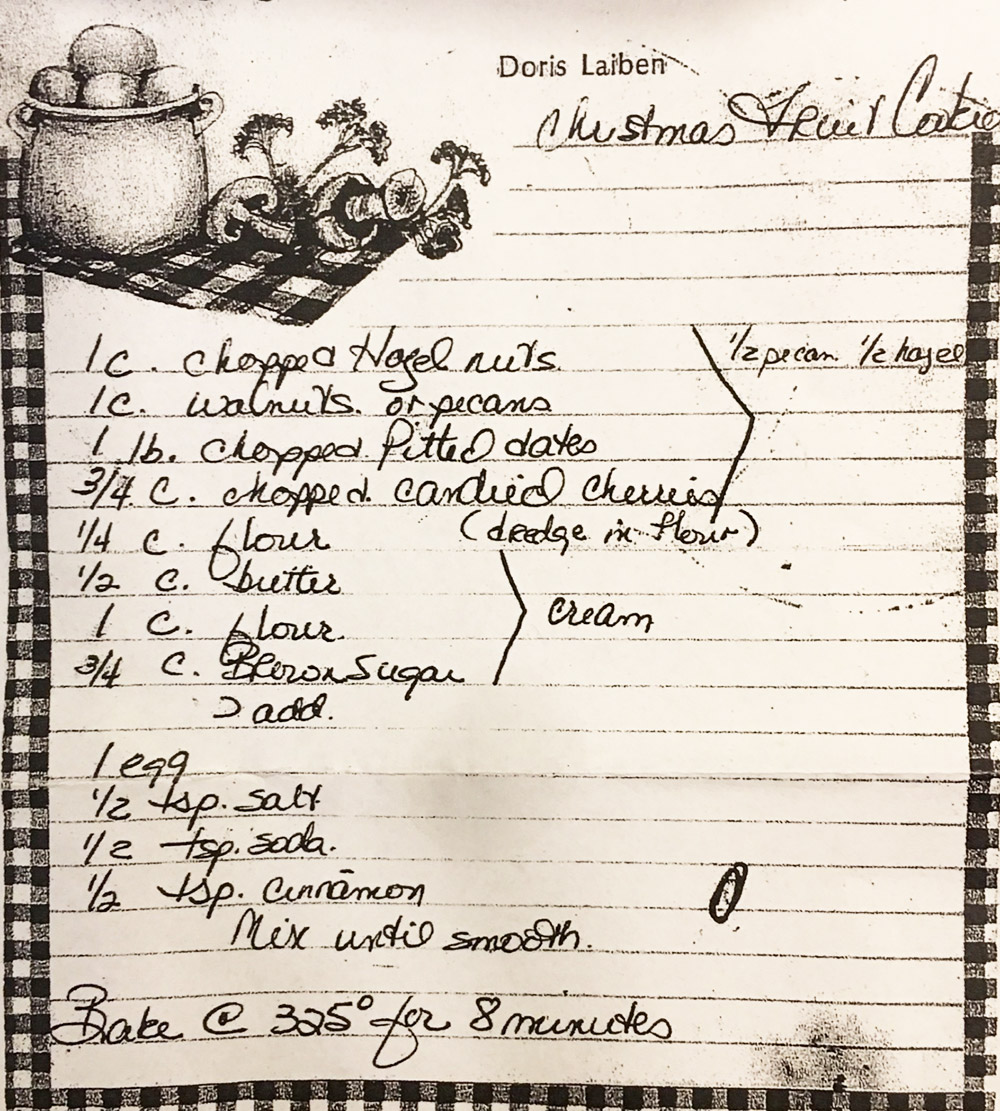 Doris Laiben
Christmas Fruit Cookie
1 c. chopped Hazel nuts 1/2 pecan 1/2 hazel
1 c. walnuts or pecans
1 lb. chopped Pitted dates
3/4 C. chopped candied cherries
1/4 c. flour (dredge in flour)
1/2 c. butter
1 C. flour cream
3/4 C. Brown Sugar
> add.
1 egg
1/2 tsp. salt
1/2 tsp. soda.
1/2 tsp. cinnamon
Mix until smooth.
Bake @ 325° for 8 minutes